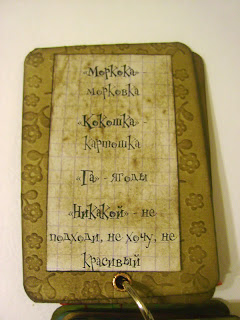 «Моркока» -
морковка
«Кокошка» -
картошка
«Га» - ягоды
«Никакой» - не
подходи, не хочу, не
красивый